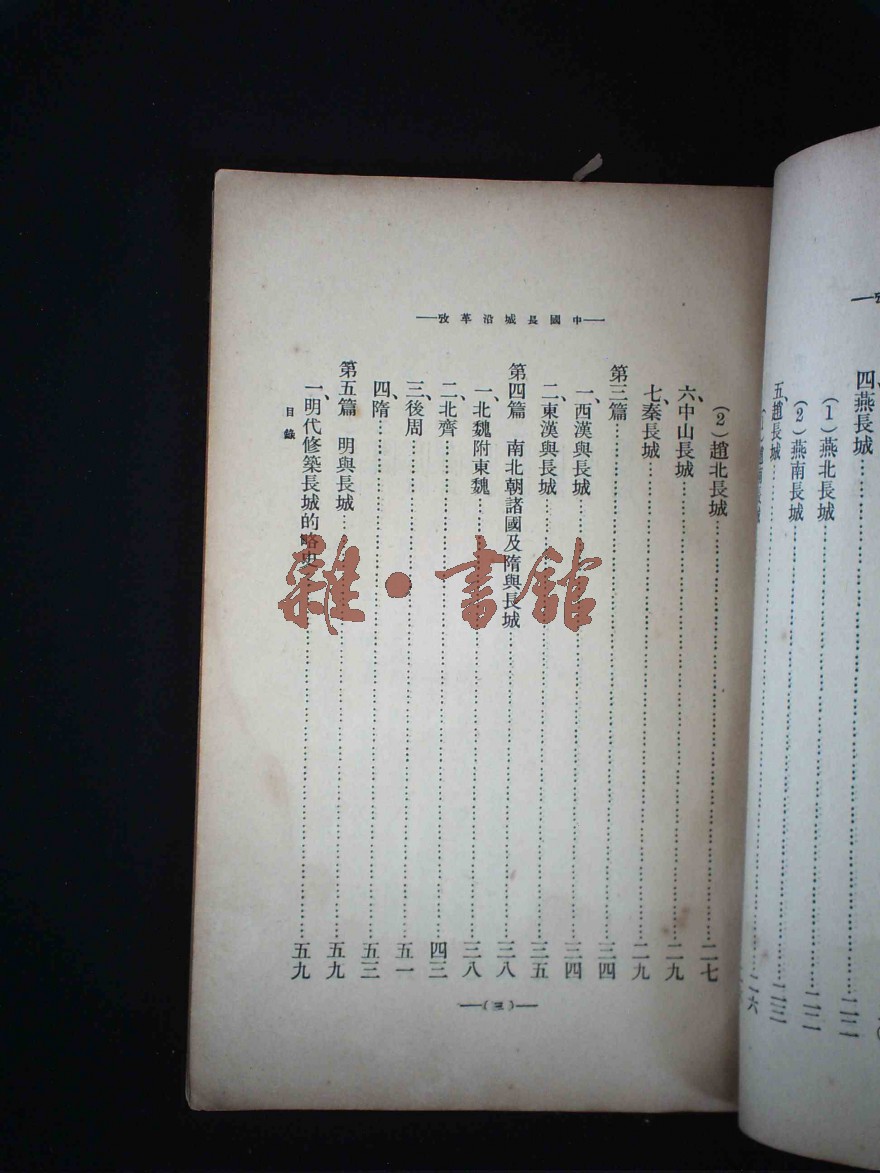 四、燕長城……二二
(1)燕北長城……二二
(2)燕南長城……二二
五、趙長城……二三
中國長城沿革攷
(2)趙北長城……二七
六、中山長城……二九
七、秦長城……二九
第三篇……三四
一、西漢與長城……三四
二、東漢與長城……三五
第四篇 南北朝諸國及隋與長城……三八
一、北魏附東魏……三八
二、北齊……四三
三、後周……五一
四、隋……五三
第五篇 明與長城……五九
一、明代修築長城的略史……五九
目錄
(三)
雜·書館